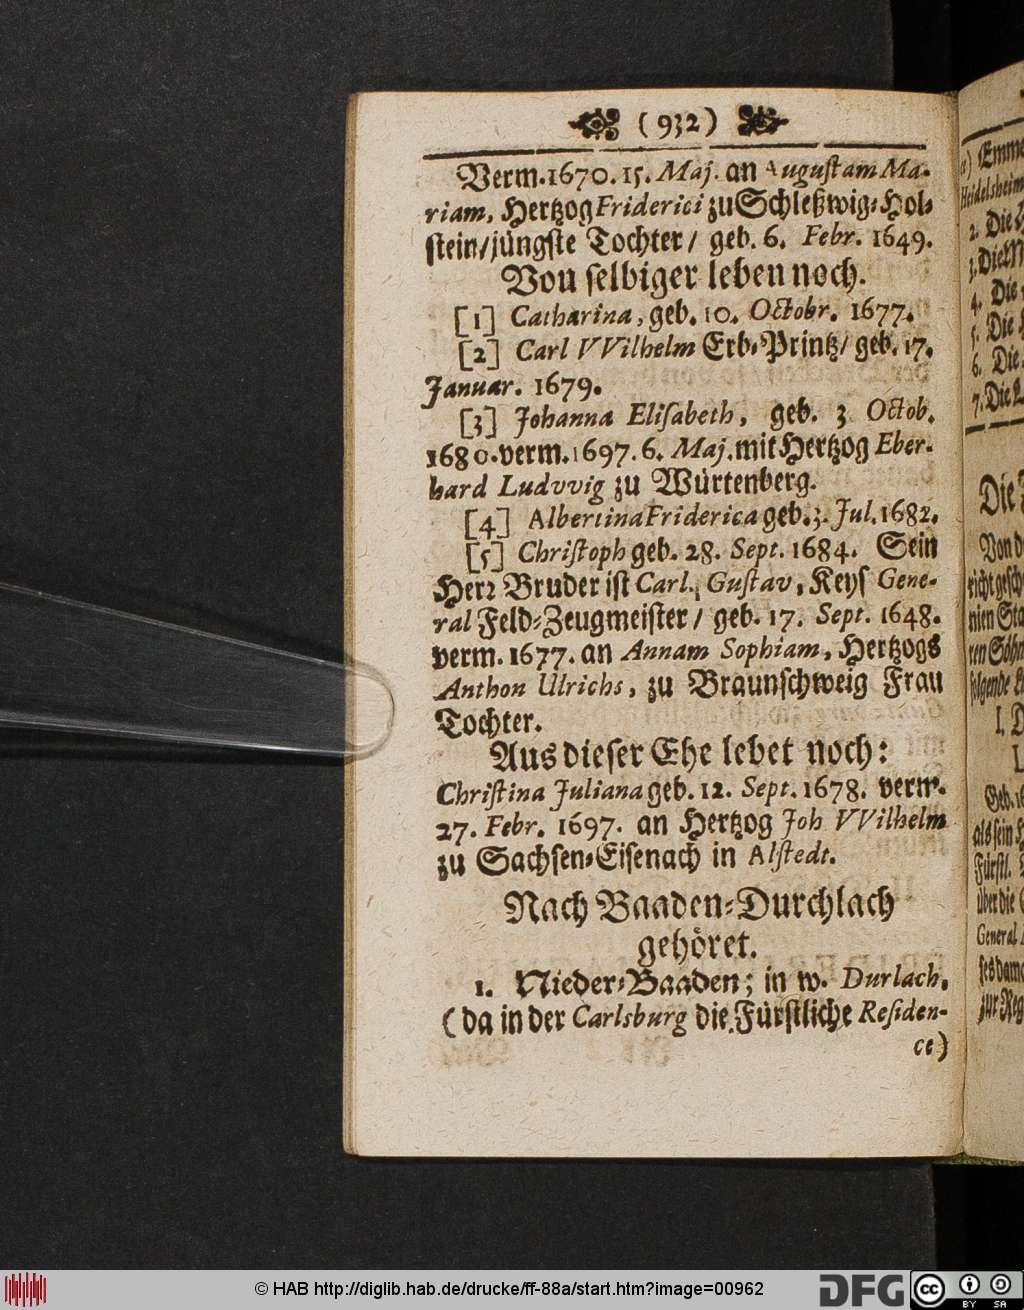 (932)
Verm. 1670. 15. Maj. an Augustam Ma-
riam, Hertzog Friderici zu Schleßwig-Hol-
stein/ jüngste Tochter/ geb. 6. Febr. 1649.
Von selbiger leben noch.
[1] Catharina, geb. 10. Octobr. 1677.
[2] Carl VVilhelm Erb-Printz/ geb. 17.
Januar. 1679.
[3] Johanna Elisabeth, geb. 3 Octob.
1680. verm. 1697. 6. Maj. mit Hertzog Eber-
hard Ludvvig zu Würtenberg.
[4] Albertina Friderica geb. 3. Jul. 1682.
[5] Christoph geb. 28. Sept. 1684. Sein
Herr Bruder ist Carl. Gustav, Keys Gene-
ral Feld-Zeugmeister/ geb. 17. Sept. 1648.
verm. 1677. an Annam Sophiam, Hertzogs
Anthon Ulrichs, zu Braunschweig Frau
Tochter.
Aus dieser Ehe lebet noch:
Christina Juliana geb. 12. Sept. 1678. verm.
27. Febr. 1697. an Hertzog Joh VVilhelm
zu Sachsen-Eisenach in Alstedt.
Nach Baaden-Durchlach
gehöret.
1. Nieder-Baaden; in w. Durlach.
(da in der Carlsburg die Fürstliche Residen-
ce)
2. Die
3. Die
4. Die
5. Die
6. Die
7. Die
Die
Von
General
© HAB http://diglib.hab.de/drucke/ff-88a/start.htm?image=00962
DFG
cc
BY SA